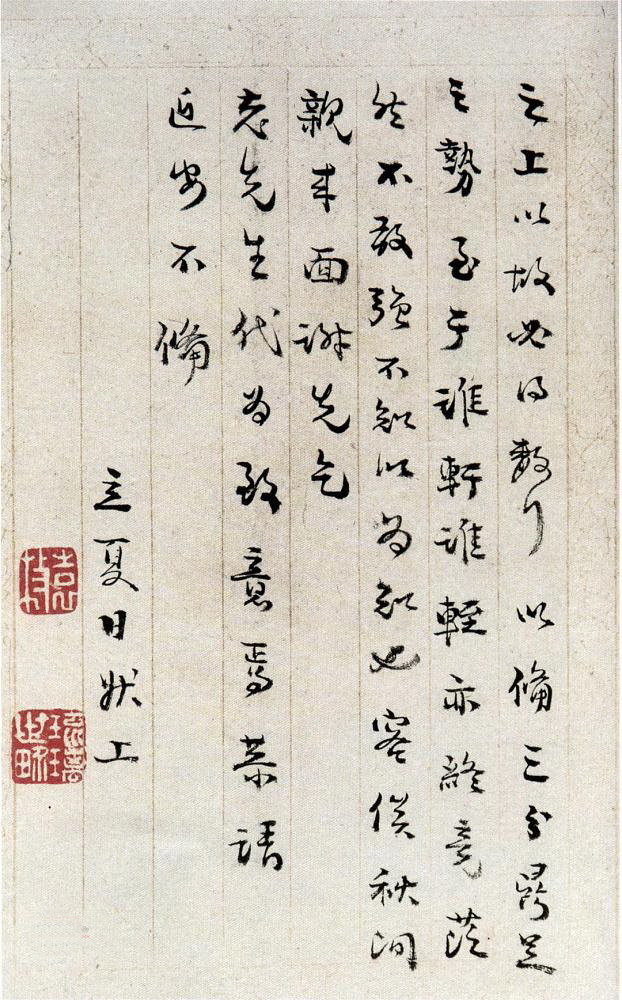 之上以故必得数行 以備三分鼎足
之勢至于誰軒誰輊亦終竟茫
然不敢強不知以為知也容俟秋間
親來面謝先乞
老先生代為致意焉恭請
近安不備
立夏日狀上